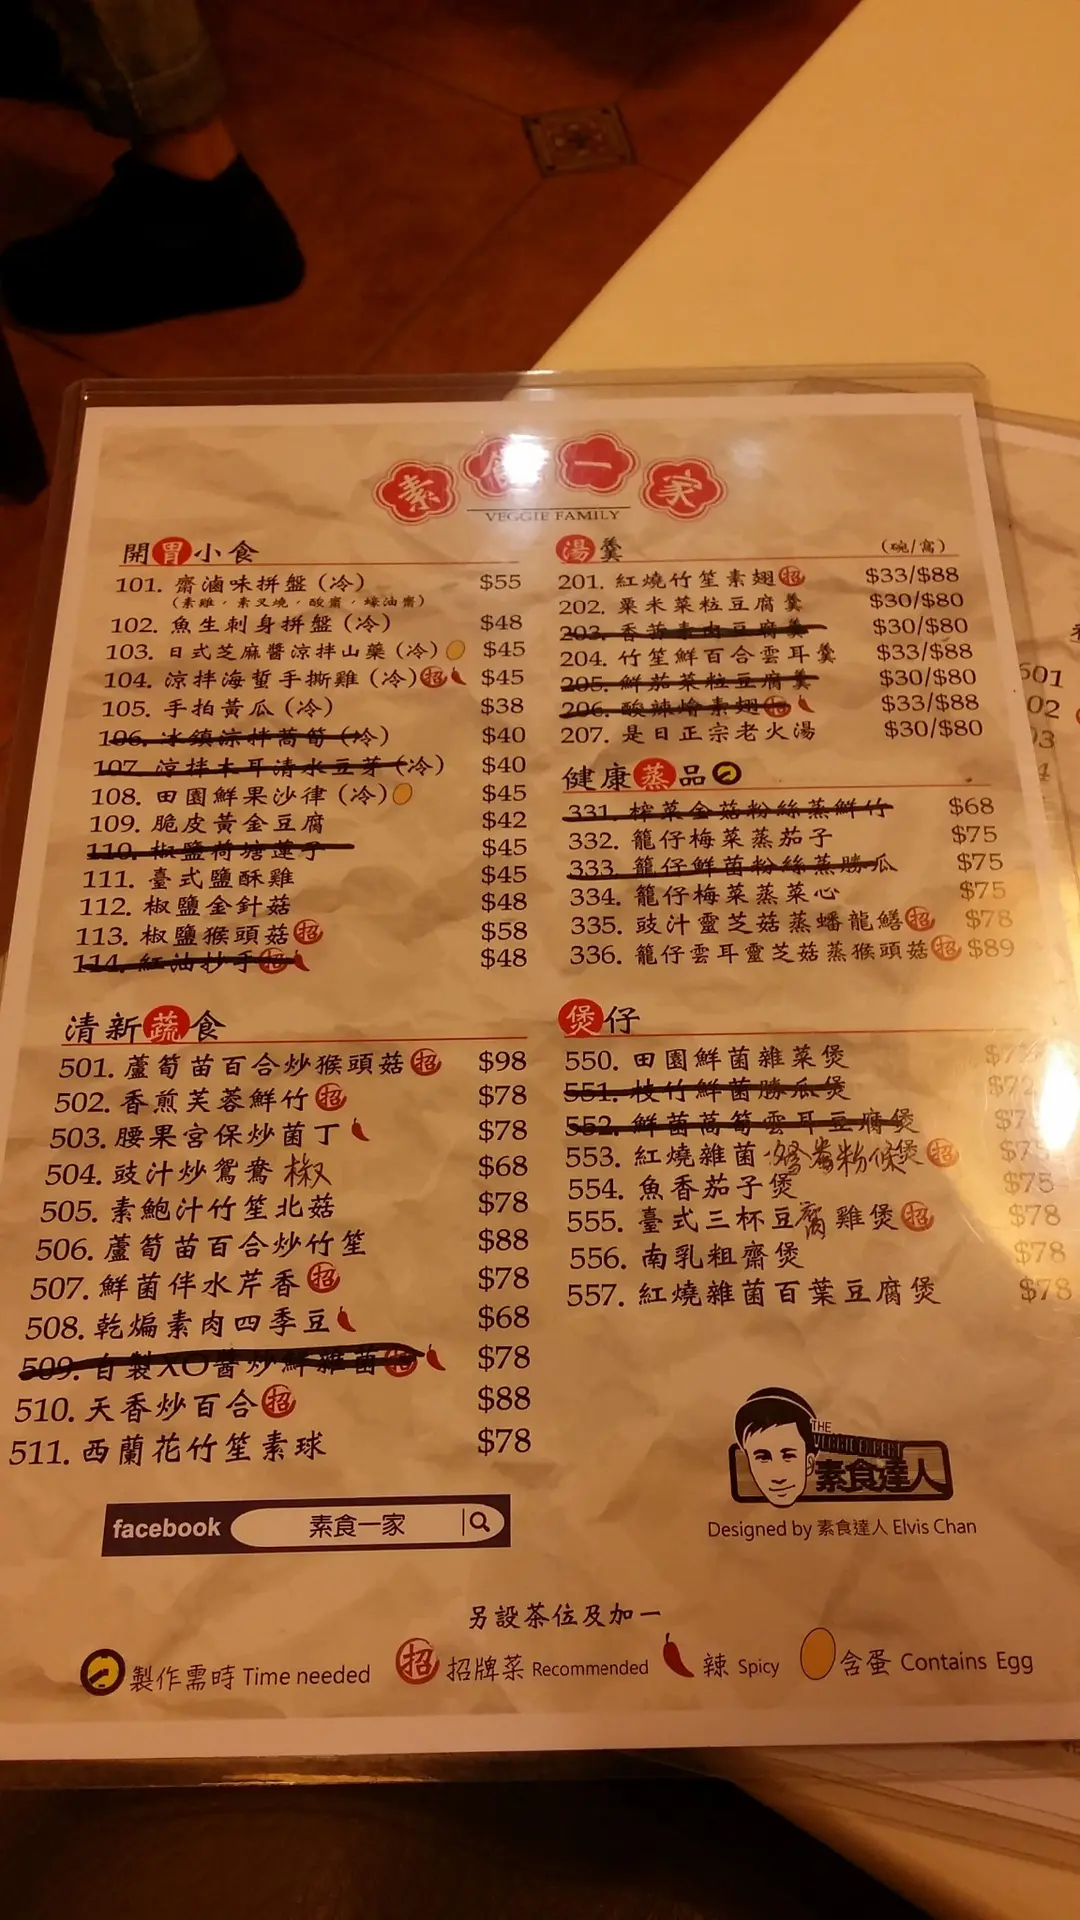 素食一家
VEGGIE FAMILY
開胃小食
101. 齋滷味拼盤 (冷) $55
(素雞，素叉燒，酸齋，蠔油齋)
102. 魚生刺身拼盤 (冷) $48
103. 日式芝麻醬涼拌山藥 (冷) $45
104. 涼拌海蜇手撕雞 (冷) 招 $45
105. 手拍黃瓜 (冷) $38
106. 冰鎮涼拌萵筍 (冷) $40
107. 涼拌木耳清水豆芽 (冷) $40
108. 田園鮮果沙律 (冷) $45
109. 脆皮黃金豆腐 $42
110. 椒鹽荷塘蓮子 $45
111. 臺式鹽酥雞 $45
112. 椒鹽金針菇 $48
113. 椒鹽猴頭菇 招 $58
114. 紅油抄手 招 $48
湯羹 (碗/窩)
201. 紅燒竹笙素翅 招 $33/$88
202. 粟米菜粒豆腐羹 $30/$80
203. 香茜素肉豆腐羹 $30/$80
204. 竹笙鮮百合雲耳羹 $33/$88
205. 鮮茄菜粒豆腐羹 $30/$80
206. 酸辣燴素翅 招 $33/$88
207. 是日正宗老火湯 $30/$80
健康蒸品
331. 榨菜金菇粉絲蒸鮮竹 $68
332. 籠仔梅菜蒸茄子 $75
333. 籠仔鮮菌粉絲蒸勝瓜 $75
334. 籠仔梅菜蒸菜心 $75
335. 豉汁靈芝菇蒸蟠龍鱔 招 $78
336. 籠仔雲耳靈芝菇蒸猴頭菇 招 $89
清新蔬食
501. 蘆筍苗百合炒猴頭菇 招 $98
502. 香煎芙蓉鮮竹 招 $78
503. 腰果宮保炒菌丁 $78
504. 豉汁炒鴛鴦椒 $68
505. 素鮑汁竹笙北菇 $78
506. 蘆筍苗百合炒竹笙 $88
507. 鮮菌伴水芹香 招 $78
508. 乾煸素肉四季豆 $68
509. 自製XO醬炒鮮雜菌 招 $78
510. 天香炒百合 招 $88
511. 西蘭花竹笙素球 $78
煲仔
550. 田園鮮菌雜菜煲
551. 枝竹鮮菌勝瓜煲 $72
552. 鮮菌萵筍雲耳豆腐煲
553. 紅燒雜菌鴛鴦粉條煲 招 $75
554. 魚香茄子煲 $75
555. 臺式三杯豆腐雞煲 招 $78
556. 南乳粗齋煲 $78
557. 紅燒雜菌百葉豆腐煲 $78
THE
VEGGIE EXPERT
素食達人
Designed by 素食達人 Elvis Chan
facebook 素食一家
另設茶位及加一
製作需時 Time needed 招 招牌菜 Recommended 辣 Spicy 含蛋 Contains Egg
501
02
03
4